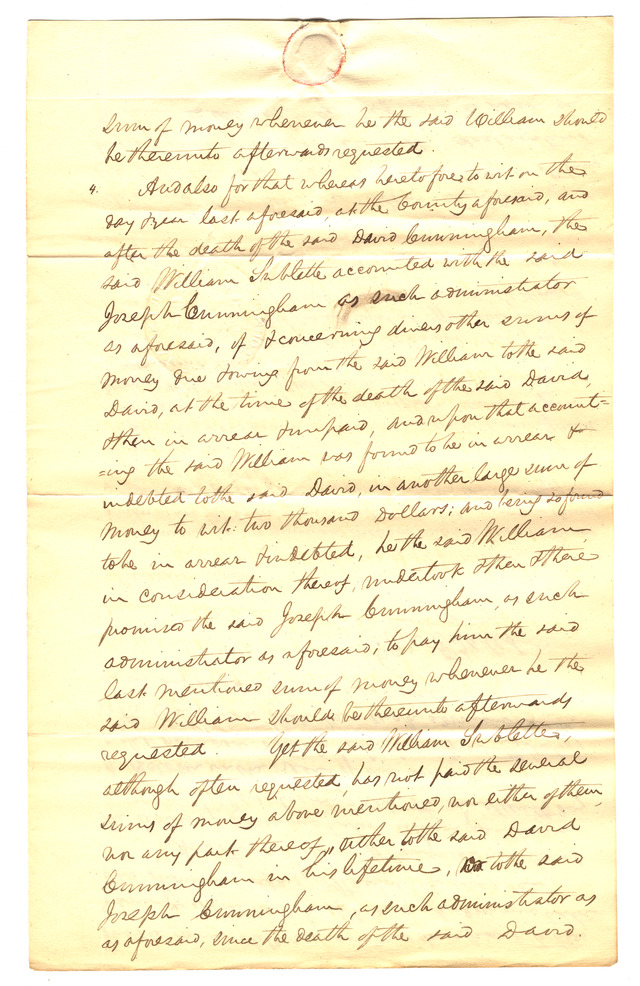 sum of money whenever he the said William should
be thereunto afterwards requested.
4. And also for that whereas heretofore to wit on the
day & year last aforesaid, at the County aforesaid, and
after the death of the said David Cunningham, the
said William Sublette accounted with the said
Joseph Cunningham as such administrator
as aforesaid, of & concerning divers other sums of
money due & owing from the said William to the said
David, at the time of the death of the said David,
& then in arrear & unpaid, and upon that account=
=ing the said William was found to be in arrear &
indebted to the said David, in another large sum of
money to wit: two thousand Dollars; and being so found
to be in arrear & indebted, he the said William
in consideration thereof, undertook & then & there
promised the said Joseph Cunningham, as such
administrator as aforesaid, to pay him the said
last mentioned sum of money whenever he the
said William should be thereunto afterwards
requested. Yet the said William Sublette,
although often requested, has not paid the several
sums of money above mentioned, nor either of them,
nor any part thereof, either to the said David
Cunningham in his lifetime, or to the said
Joseph Cunningham, as such administrator as
as aforesaid, since the death of the said David.